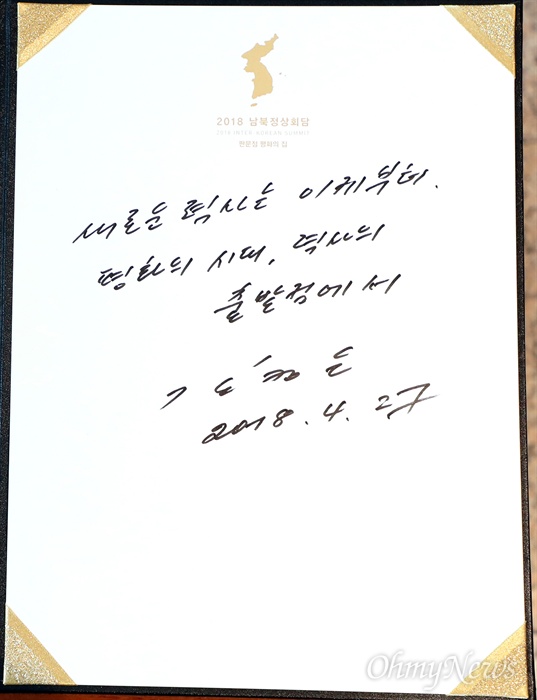 2018 남북정상회담
2018 INTER-KOREAN SUMMIT
판문점 평화의 집
새로운 력사는 이제부터.
평화의 시대, 력사의
출발점에서
김정은
2018. 4. 27
OhmyNews